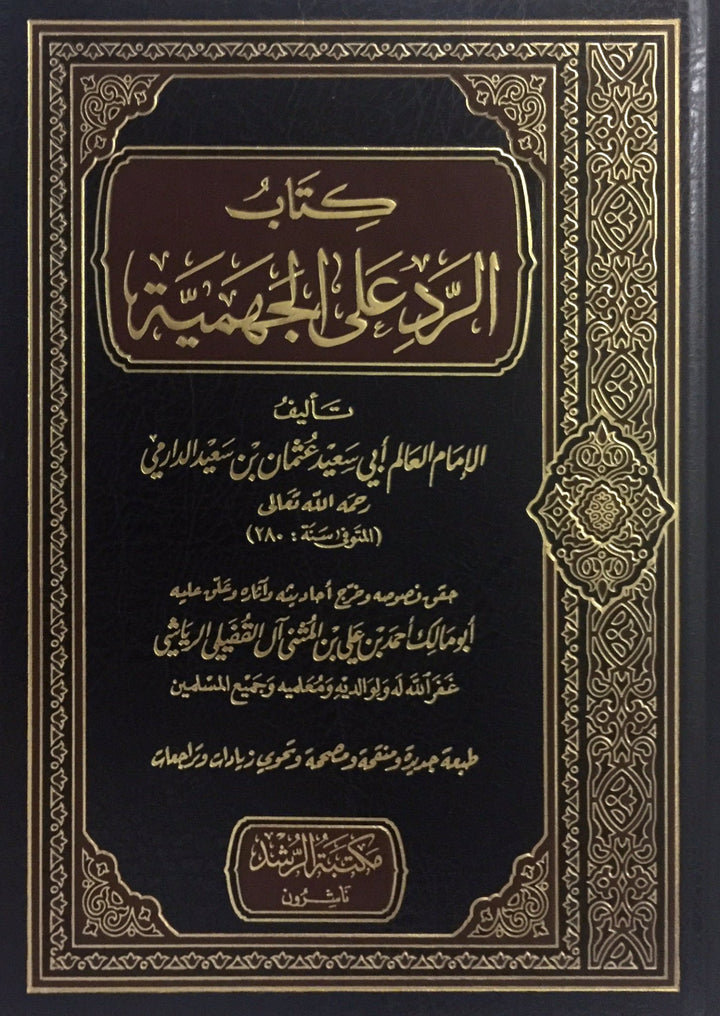 كِتَابُ
الرَّدِّ عَلَى الجَهْمِيَّة
تَأليفُ
الإمَام العَالم أبي سَعِيْد عُثْمَان بْن سَعِيْد الدَارمي
رحمه الله تعَالى
(المتوفى سَنَة : ٢٨٠)
حقق نصوصه وخرّج أحاديثه وآثاره وعَلّق عليه
أبو مَالِك أحمَد بْن عَلي بْن المُثَنى آل القُفَيلي الرياشي
غَفَرَ اللّه له وَلوَالديْهِ وَمُعَلميه وَجَميْع المسْلمين
طبعة جديدة ومنقحة ومصححة وتحوي زيادات وتراجعات
مكتبة الرُّشد
نَاشِرُون